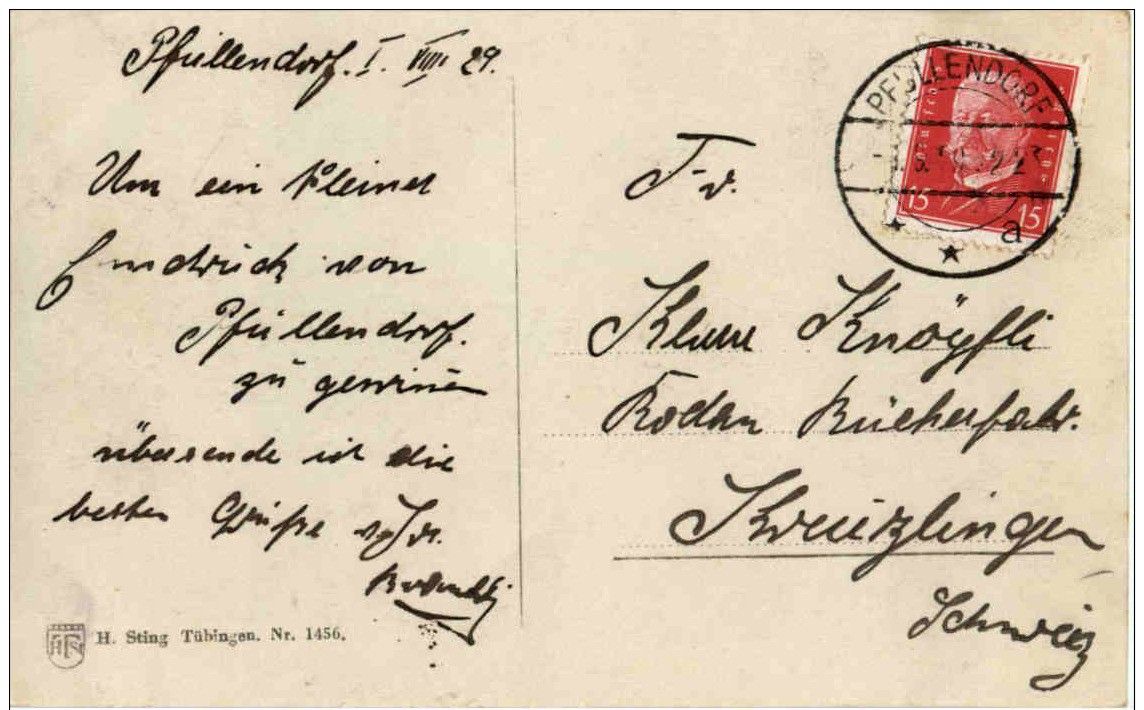 Pfullendorf. I. VIII 29.
Um ein kleinen
Eindrück von
Pfullendorf.
zu gewinen
übersende ich die
besten Grüsse
H. Sting Tübingen. Nr. 1456.
PFULLENDORF
15 15
a
Fr.
Knöpfli
Rodan Bücherfabr.
Kreuzlingen
Schweiz